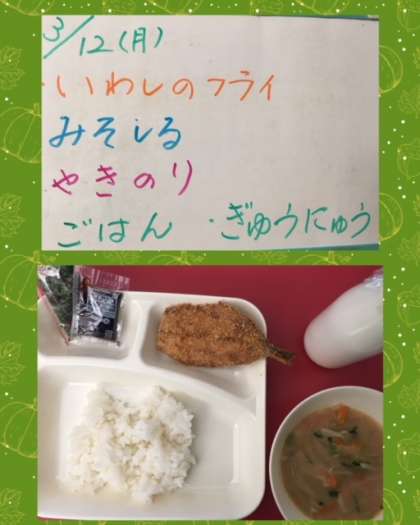 3/12(月)
・いわしのフライ
みそしる
・やきのり
ごはん ・ぎゅうにゅう